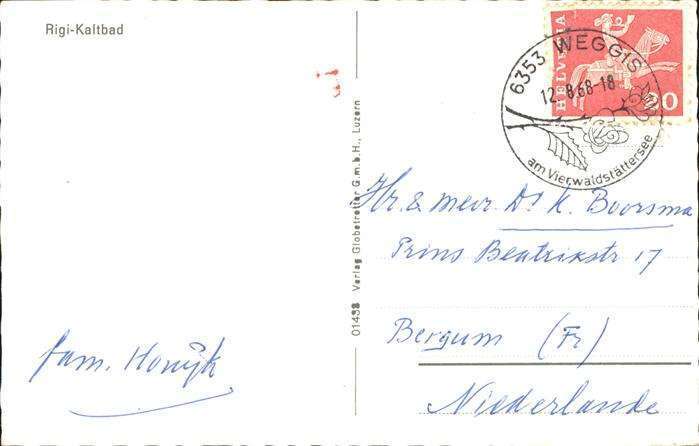 Rigi-Kaltbad
HELVETIA
20
6353 WEGGIS
12.-8.68-18
am Vierwaldstättersee
01438 Verlag Globetrotter G.m.b.H., Luzern
Hr. & mevr. Dr. K. Boorsma
Prins Beatrixstr 17
Bergum (Fr)
Niederlande
fam.